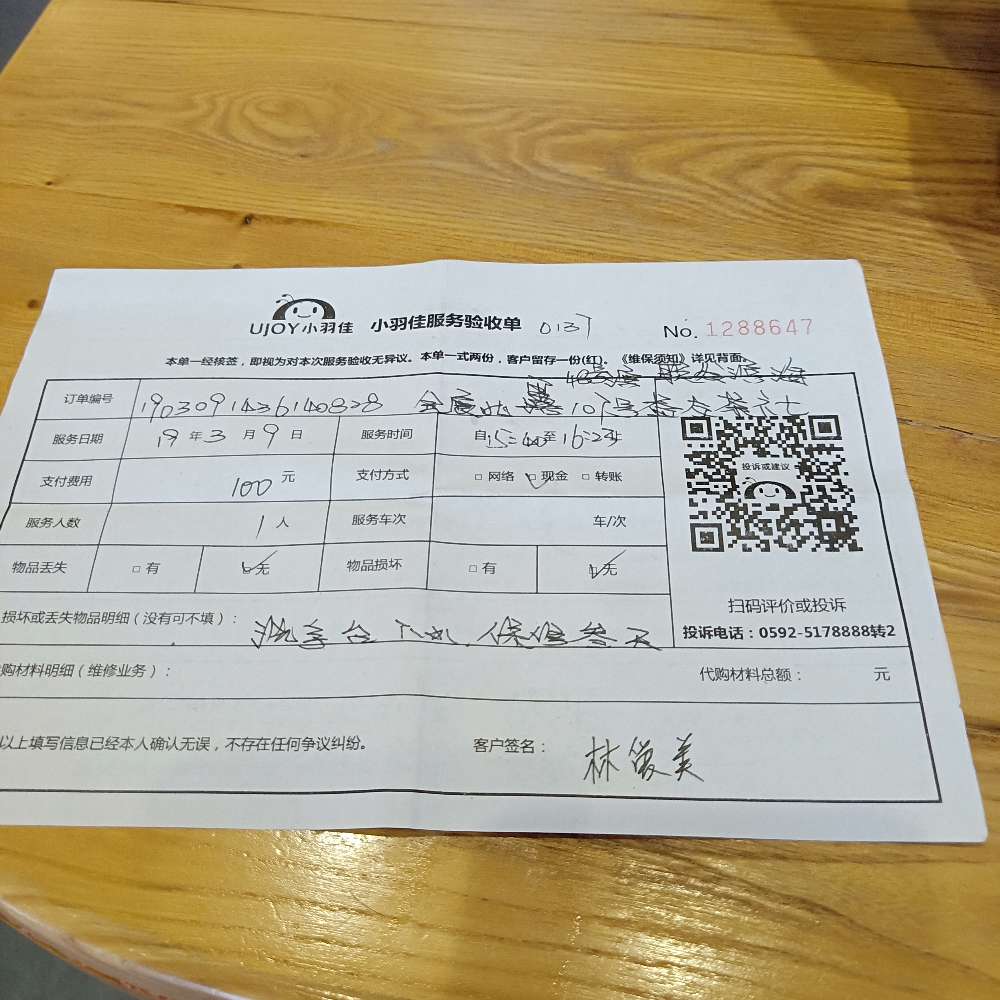 UJOY小羽佳 小羽佳服务验收单 0137 No. 1288647
本单一经核签，即视为对本次服务验收无异议。本单一式两份，客户留存一份(红)。《维保须知》详见背面。
订单编号 1903091436140828
服务日期 19 年 3 月 9 日 服务时间 自15:40至16:23
投诉或建议
支付费用 100 元 支付方式 □ 网络 ☑ 现金 □ 转账
服务人数 1 人 服务车次 车/次
物品丢失 □ 有 ☑ 无 物品损坏 □ 有 ☑ 无
扫码评价或投诉
损坏或丢失物品明细（没有可不填）： 洗手台下水 保
投诉电话：0592-5178888转2
购材料明细（维修业务）： 代购材料总额： 元
以上填写信息已经本人确认无误，不存在任何争议纠纷。 客户签名： 林俊美